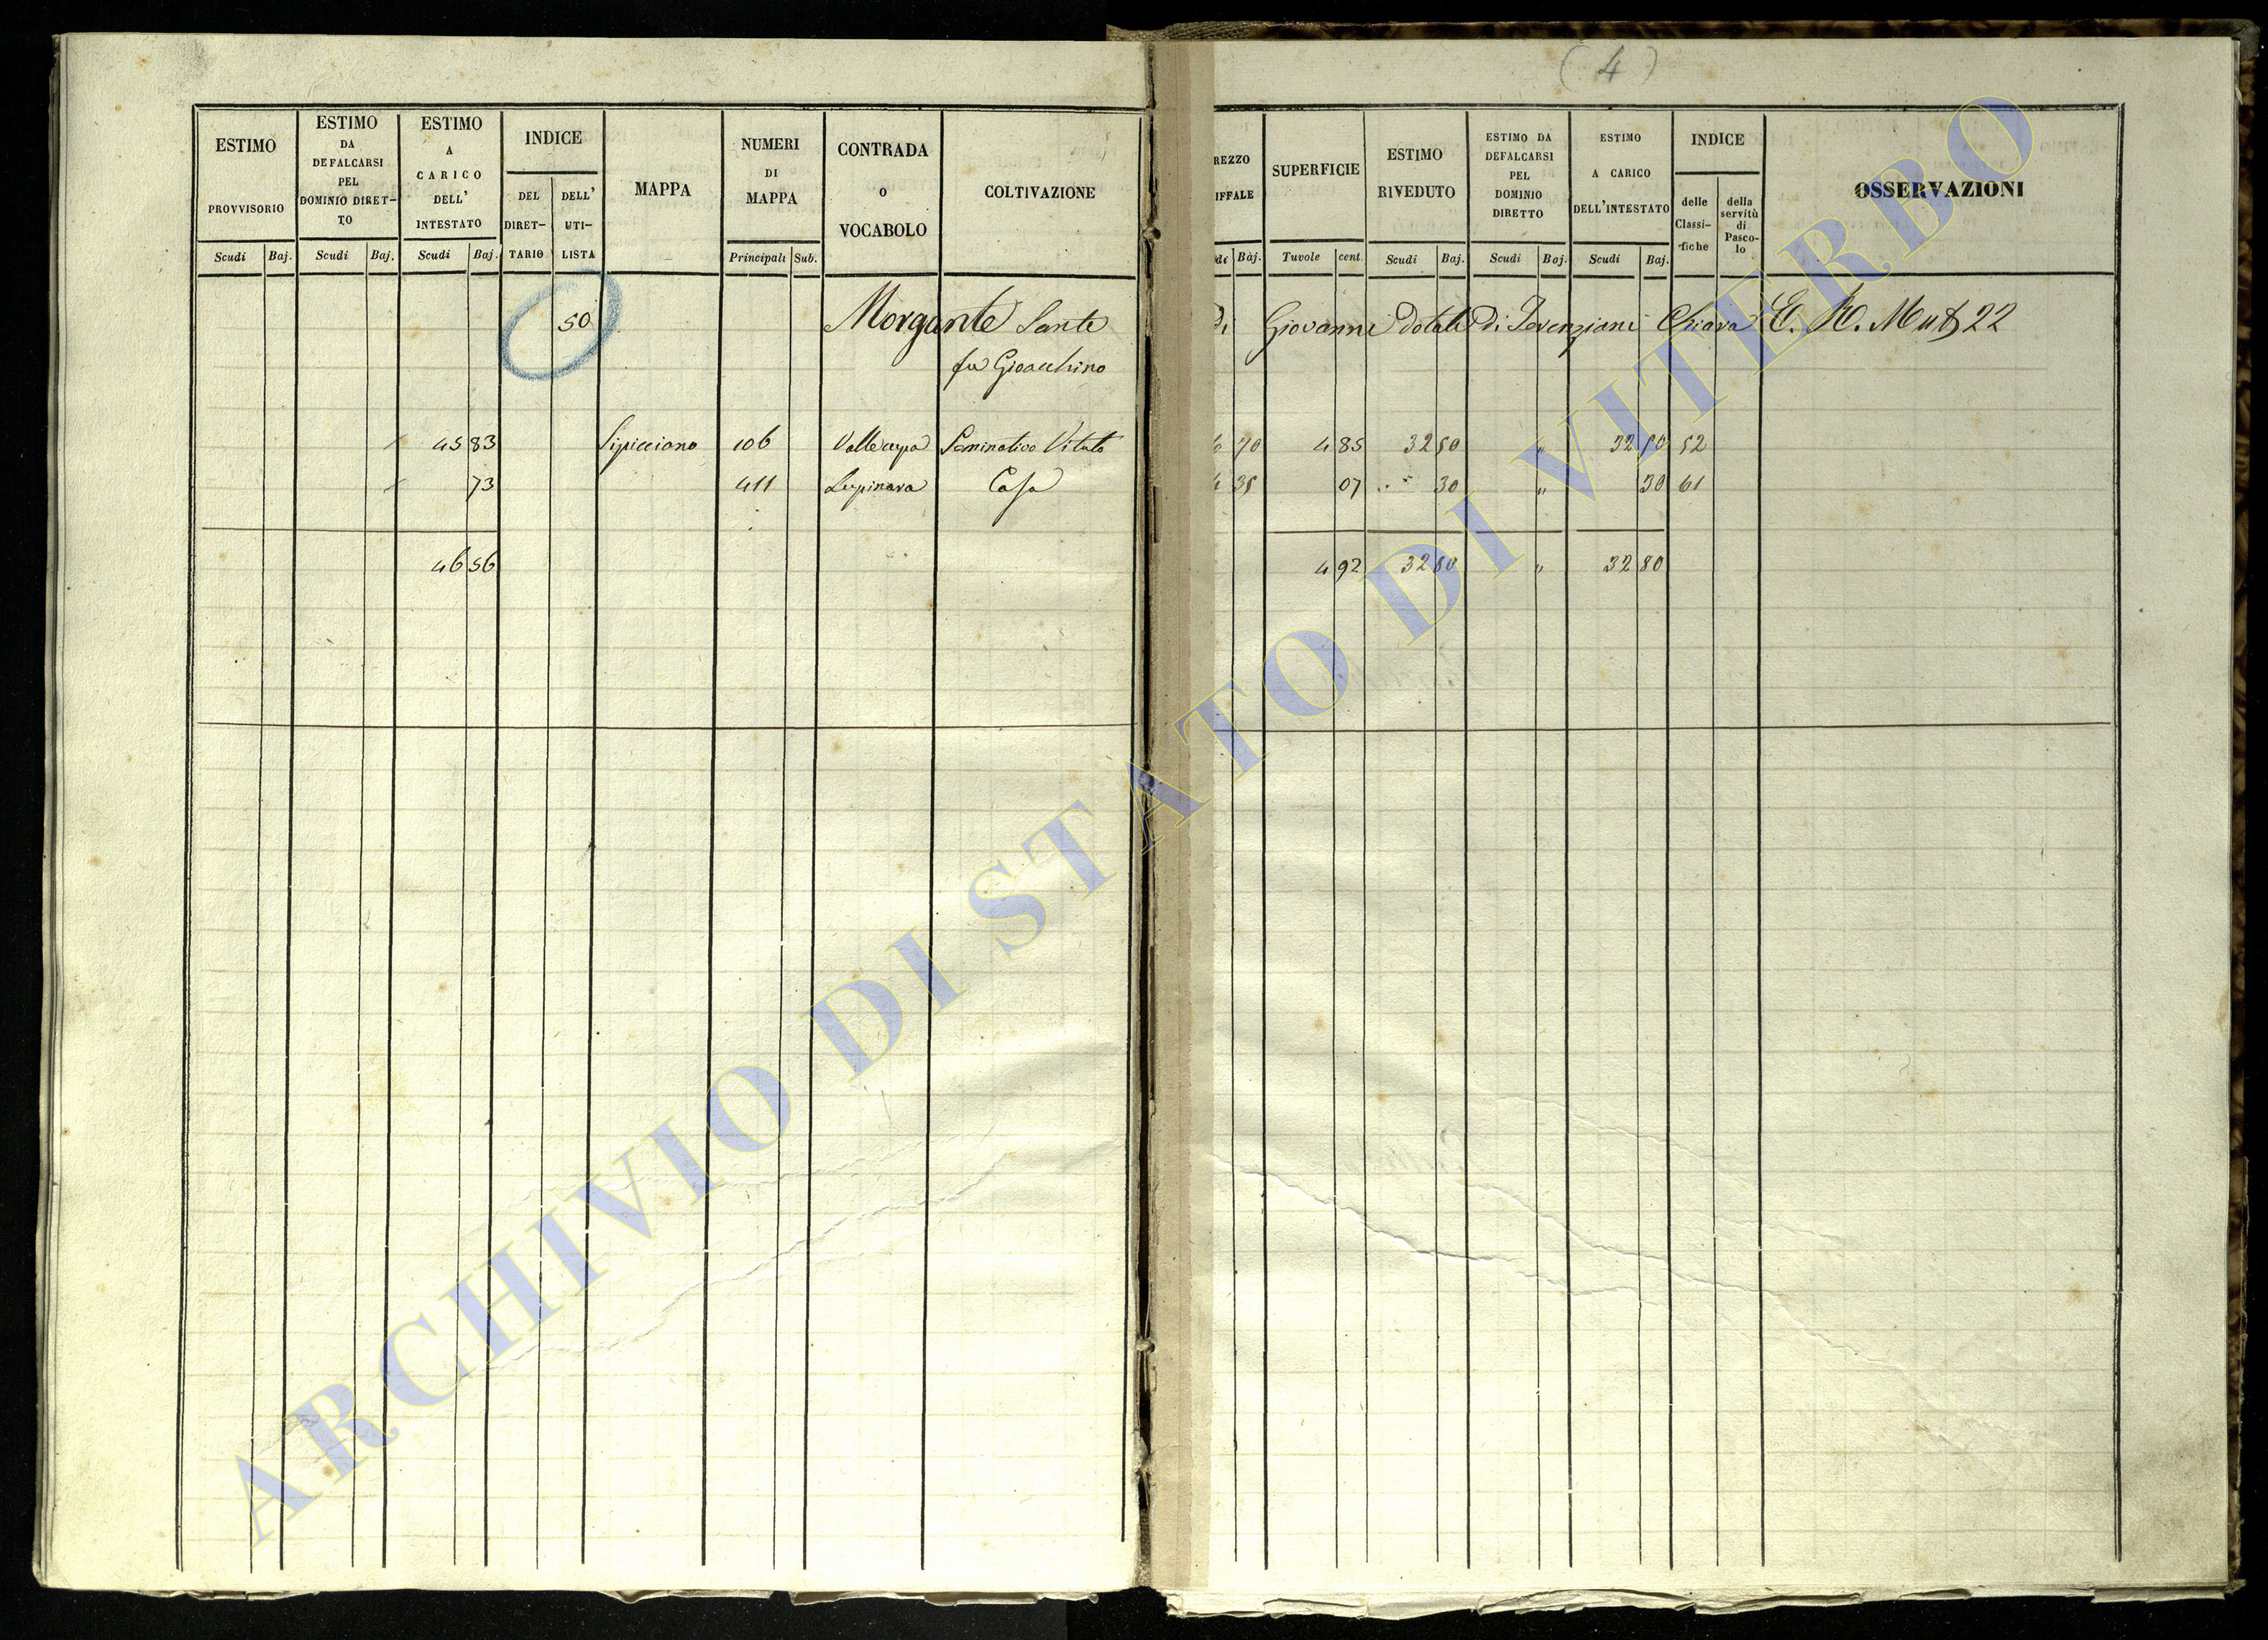 (4)
ESTIMO PROVVISORIO
ESTIMO DA DEFALCARSI PEL DOMINIO DIRET-TO
ESTIMO A CARICO DELL' INTESTATO
INDICE
DEL DIRET-TARIO
DELL' UTI-LISTA
MAPPA
NUMERI DI MAPPA
CONTRADA O VOCABOLO
COLTIVAZIONE
Scudi Baj. Scudi Baj. Scudi Baj. Principali Sub.
REZZO IFFALE
SUPERFICIE
ESTIMO RIVEDUTO
ESTIMO DA DEFALCARSI PEL DOMINIO DIRETTO
ESTIMO A CARICO DELL'INTESTATO
INDICE
delle Classi-fiche
della servitù di Pasco-lo
OSSERVAZIONI
di Baj. Tuvole cent. Scudi Baj. Scudi Baj. Scudi Baj.
50 Morgante Sante di Giovanni dotale di Terenziani Chiara
fu Gioacchino
45 83 Sipicciano 106 Vallecupa Seminativo Vitato 70 4 85 32 50 " 32 50 52
73 411 Lupinara Casa 35 07 30 " 30 61
46 56 4 92 32 80 " 32 80
ARCHIVIO DI STATO DI VITERBO